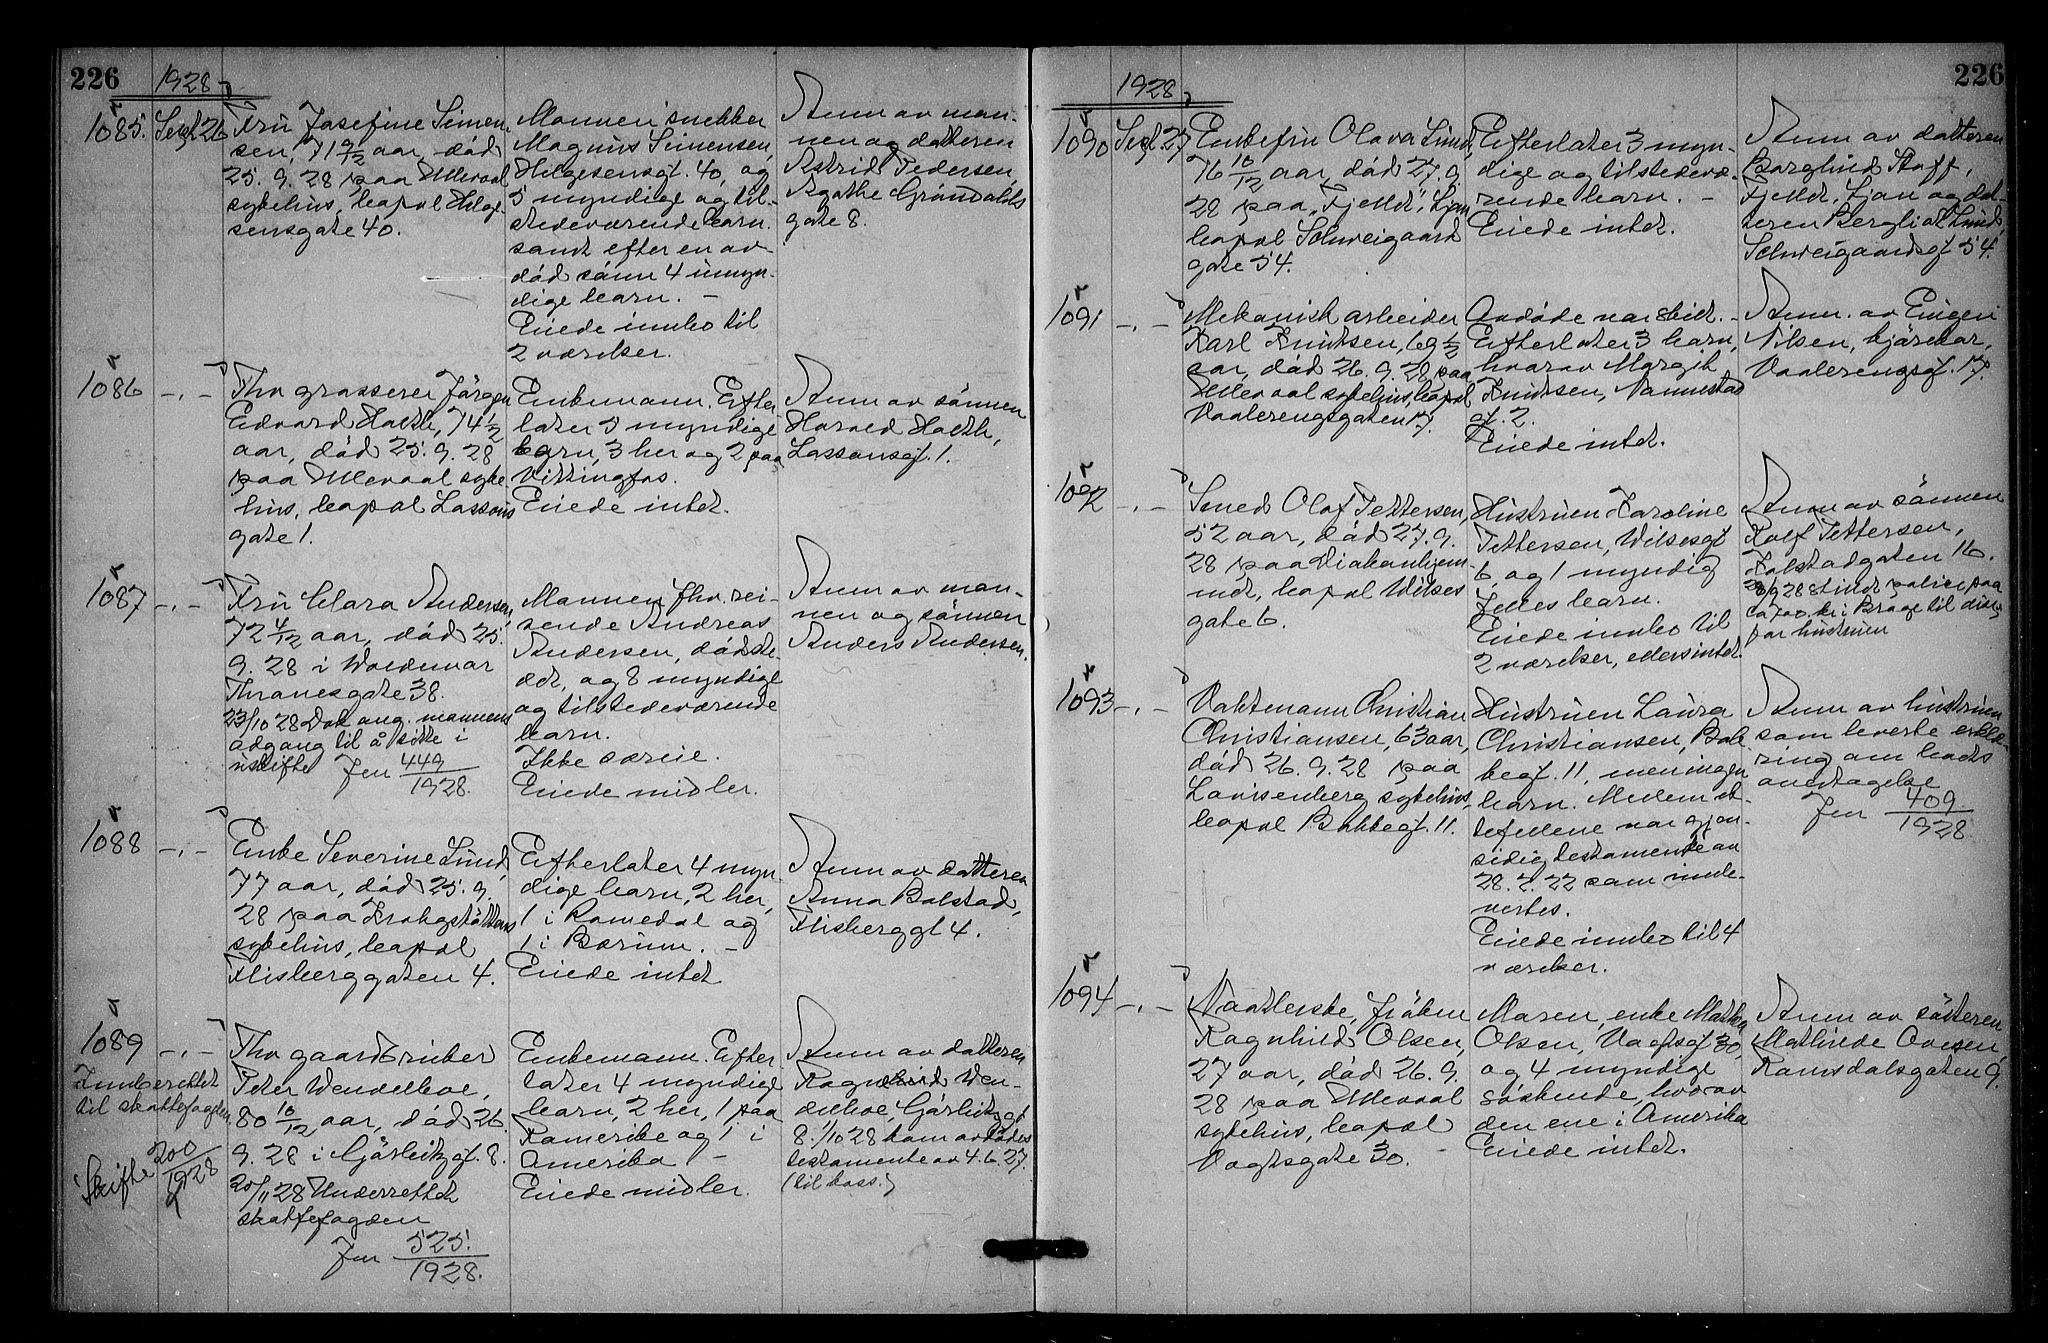 226
1928
1085. Sept 26
Fru Josefine Simen-
sen, 71 9/12 aar, død
25. 9. 28 paa Ullevaal
sykehus, bopæl Helge-
sensgate 40.
Mannen snekker
Magnus Simensen,
Helgesensgt. 40, og
5 myndige og til-
stedeværende barn
samt efter en av-
død sønn 4 umyn-
dige barn. –
Eiede innbo til
2 værelser.
Anm. av man-
nen og datteren
Astrid Pedersen,
Agathe Grøndahls
gate 8.
1086 -„-
Fhv grosserer Jørgen
Edvard Holth, 74 1/2
aar, død 25. 9. 28
paa Ullevaal syke-
hus, bopæl Lassons
gate 1.
Enkemann. Efter-
later 5 myndige
barn, 3 her og 2 paa
Vittingfos.
Eiede intet.
Anm av sønnen
Harald Holth,
Lassonsgt. 1.
1087 -„-
Fru Clara Andersen,
72 4/12 aar, død 25.
9. 28 i Waldemar
Thranesgate 38.
23/10 28 Dok ang. mannens
adgang til å sitte i
uskifte Jnr 449/1928.
Mannen fhv. rei-
sende Andreas
Andersen, dødste-
det, og 8 myndige
og tilstedeværende
barn.
Ikke særeie.
Eiede midler.
Anm av man-
nen og sønnen
Anders Andersen.
1088 -„-
Enke Severine Lund,
77 aar, død 25. 9.
28 paa Krohgstøttens
sykehus, bopæl
Flisberggaten 4.
Efterlater 4 myn-
dige barn, 2 her,
1 i Romedal og
1 i Bærum. –
Eiede intet
Anm av datteren
Anna Bolstad,
Flisberggt 4.
1089 -„-
Innberettet
til skattefogden
Skifte 200/1928
Fhv gaardbruker
Peter Wendelboe,
80 10/12 aar, død 26.
9. 28 i Gørbitzgt. 8.
20/11 28 Underrettet
skattefogden
Jnr 525./1928.
Enkemann. Efter-
later 4 myndige
barn, 2 her, 1 paa
Romerike og 1 i
Amerika –
Eiede midler.
Anm av datteren
Ragnhild Wen-
delboe, Gørbitzgt
8. 1/10 28 kom avdødes
testamente av 4. 6. 27.
(til kass.)
226
1928
1090 Sept 27
Enkefru Olava Lund,
76 10/12 aar, død 27. 9.
28 paa „Fjeldt", Ljan
bopæl Schweigaard
gate 54.
Efterlater 3 myn-
dige og tilstedevæ-
rende barn. –
Eiede intet.
Anm av datteren
Borghild Staff,
Fjeldt, Ljan og dat-
teren Bergliot Lund,
Schweigaardsgt 54.
1091 -„-
Mekanisk arbeider
Karl Knutsen, 69 1/2
aar, død 26. 9. 28 paa
Ullevaal sykehus, bopæl
Vaalerengsgaten 17.
Avdøde var skilt. –
Efterlater 3 barn,
hvorav Margit
Knutsen, Nannestad
gt. 2.
Eiede intet.
Anm. av Eugen
Nilsen, kjørekar,
Vaalerengsgt. 17.
1092 -„-
Smed Olaf Pettersen,
52 aar, død 27. 9.
28 paa Diakonhjem-
met, bopæl Wilses
gate 6.
Hustruen Karoline
Pettersen, Wilsesgt
6, og 1 myndig
felles barn.
Eiede innbo til
2 værelser, ellers intet.
Anm av sønnen
Rolf Pettersen,
Falstadgaten 16.
28/9 28 sendt police paa
ca 700 kr i Brage til disp.
for hustruen
1093 -„-
Vaktmann Christian
Christiansen, 63 aar,
død 26. 9. 28 paa
Lovisenberg sykehus,
bopæl Bakkegt. 11.
Hustruen Laura
Christiansen, Bak-
kegt. 11, men ingen
barn. Mellem ek-
tefellene var gjen-
sidig testamente av
28. 2. 22 som innle-
vertes.
Eiede innbo til 4
værelser.
Anm av hustruen
som leverte erklæ-
ring om boets
overtagelse
Jnr 409/1928
1094 -„-
Vaatlerske, frøken
Ragnhild Olsen,
27 aar, død 26. 9.
28 paa Ullevaal
sykehus, bopæl
Vogtsgate 30. –
Moren, enke Mathea
Olsen, Vogtsgt 30,
og 4 myndige
søskende, hvorav
den ene i Amerika
Eiede intet.
Anm av søsteren
Mathilde Ovesen,
Ramsdalsgaten 9.